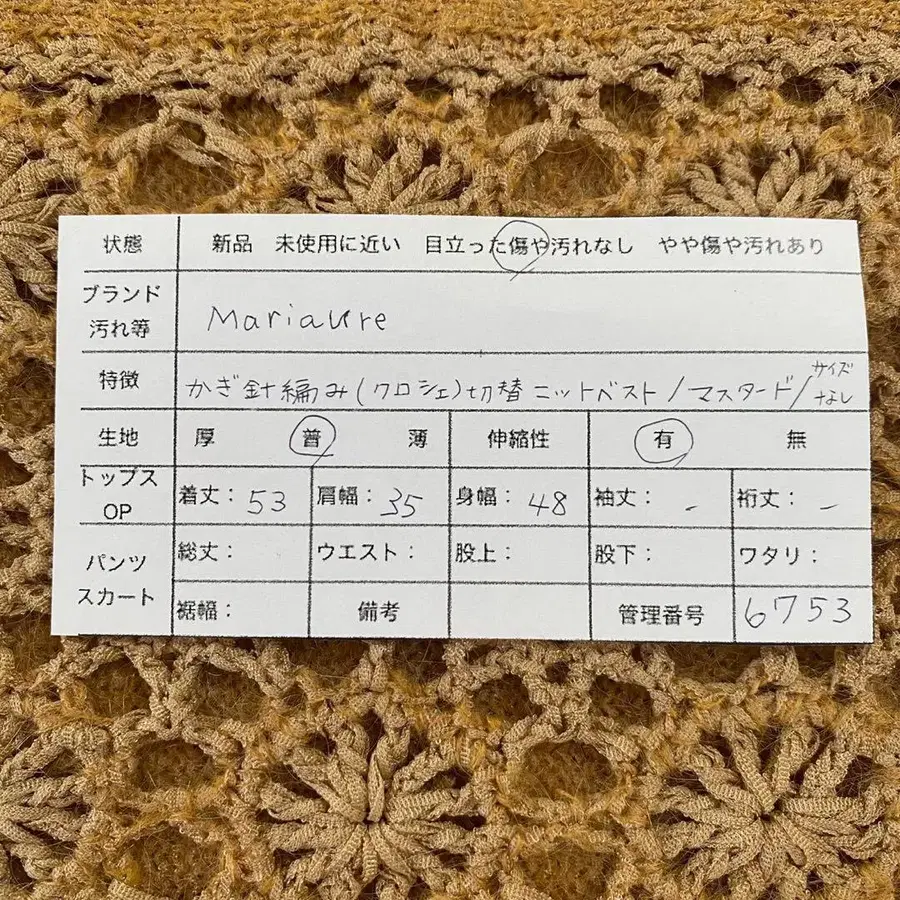 状態 新品 未使用に近い 目立った傷や汚れなし やや傷や汚れあり
ブランド
汚れ等 Mariaure
特徴 かぎ針編み(クロシェ)切替ニットベスト/マスタード/サイズなし
生地 厚 普 薄 伸縮性 有 無
トップス
OP 着丈: 53 肩幅: 35 身幅: 48 袖丈: - 裄丈: -
パンツ
スカート 総丈: ウエスト: 股上: 股下: ワタリ:
裾幅: 備考 管理番号 6753